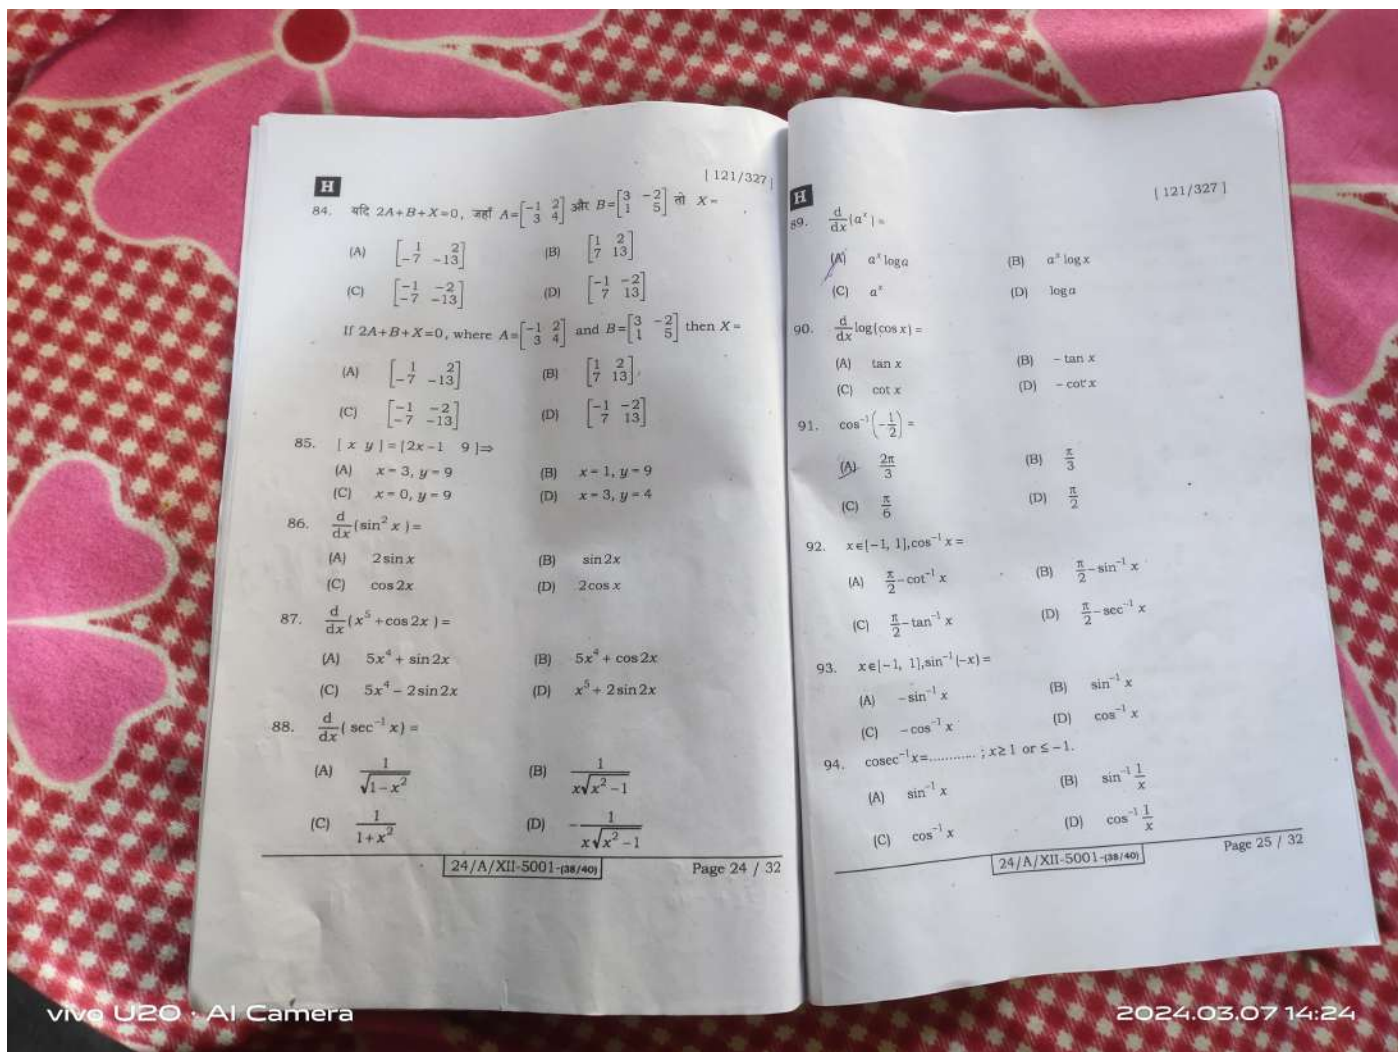 H
[ 121/327 ]
84. यदि 2A+B+X=0, जहाँ A=[−1 2; 3 4] और B=[3 −2; 1 5] तो X=
(A) [1 2; −7 −13] (B) [1 2; 7 13]
(C) [−1 −2; −7 −13] (D) [−1 −2; 7 13]
If 2A+B+X=0, where A=[−1 2; 3 4] and B=[3 −2; 1 5] then X=
(A) [1 2; −7 −13] (B) [1 2; 7 13]
(C) [−1 −2; −7 −13] (D) [−1 −2; 7 13]
85. [ x y ]=[2x−1 9]⇒
(A) x=3, y=9 (B) x=1, y=9
(C) x=0, y=9 (D) x=3, y=4
86. d/dx(sin² x)=
(A) 2 sin x (B) sin 2x
(C) cos 2x (D) 2 cos x
87. d/dx(x⁵+cos 2x)=
(A) 5x⁴ + sin 2x (B) 5x⁴ + cos 2x
(C) 5x⁴ − 2 sin 2x (D) x⁵ + 2 sin 2x
88. d/dx( sec⁻¹ x) =
(A) 1/√(1−x²) (B) 1/(x√(x²−1))
(C) 1/(1+x²) (D) −1/(x√(x²−1))
24/A/XII-5001-(38/40) Page 24 / 32
H
[ 121/327 ]
89. d/dx(aˣ) =
(A) aˣ log a (B) aˣ log x
(C) aˣ (D) log a
90. d/dx log(cos x) =
(A) tan x (B) − tan x
(C) cot x (D) − cot x
91. cos⁻¹(−1/2) =
(A) 2π/3 (B) π/3
(C) π/6 (D) π/2
92. x∈[−1, 1], cos⁻¹ x =
(A) π/2 − cot⁻¹ x (B) π/2 − sin⁻¹ x
(C) π/2 − tan⁻¹ x (D) π/2 − sec⁻¹ x
93. x∈[−1, 1], sin⁻¹(−x) =
(A) − sin⁻¹ x (B) sin⁻¹ x
(C) − cos⁻¹ x (D) cos⁻¹ x
94. cosec⁻¹x=............ ; x≥1 or ≤ −1.
(A) sin⁻¹ x (B) sin⁻¹ 1/x
(C) cos⁻¹ x (D) cos⁻¹ 1/x
24/A/XII-5001-(38/40) Page 25 / 32
vivo U20 · AI Camera
2024.03.07 14:24